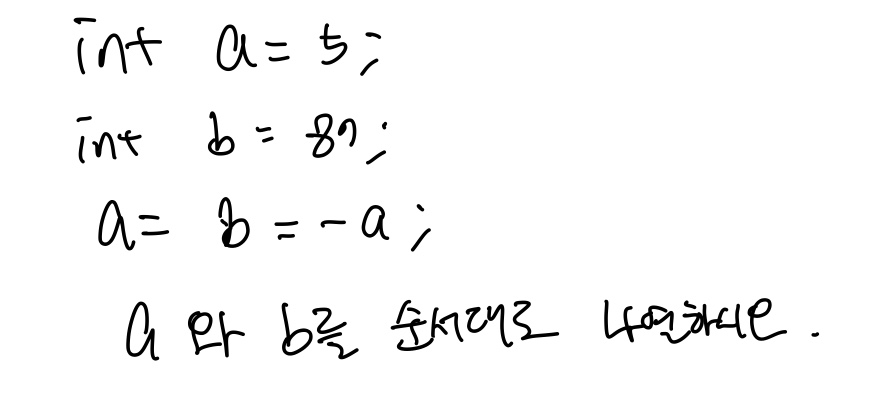 int a = 5;
int b = 89;
a = b = -a;
a 와 b를 순서대로 나열하시면.